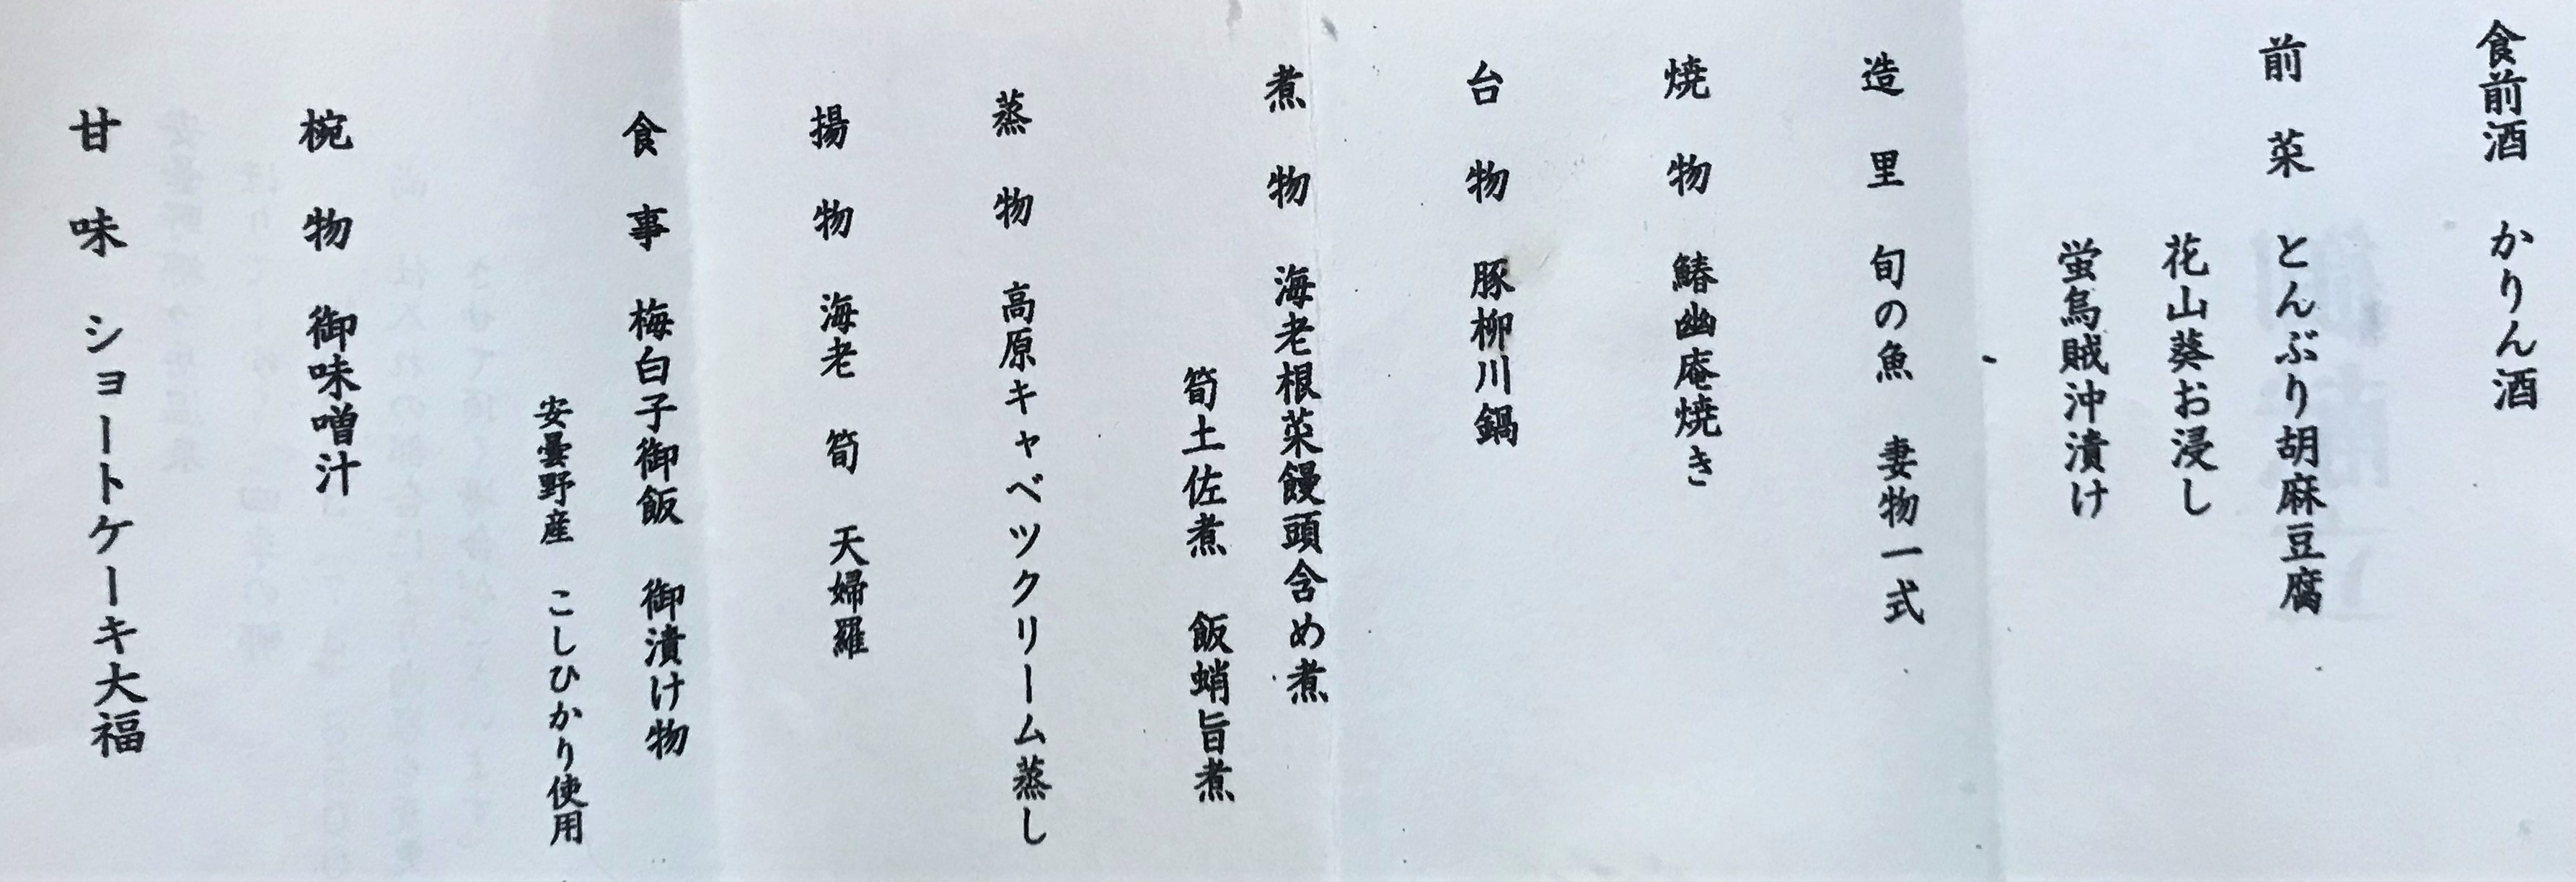 食前酒　かりん酒
前　菜　とんぶり胡麻豆腐
花山葵お浸し
蛍烏賊沖漬け
造　里　旬の魚　妻物一式
焼　物　鰆幽庵焼き
台　物　豚柳川鍋
煮　物　海老根菜饅頭含め煮
筍土佐煮　飯蛸旨煮
蒸　物　高原キャベツクリーム蒸し
揚　物　海老　筍　天婦羅
食　事　梅白子御飯　御漬け物
安曇野産　こしひかり使用
椀　物　御味噌汁
甘　味　ショートケーキ大福